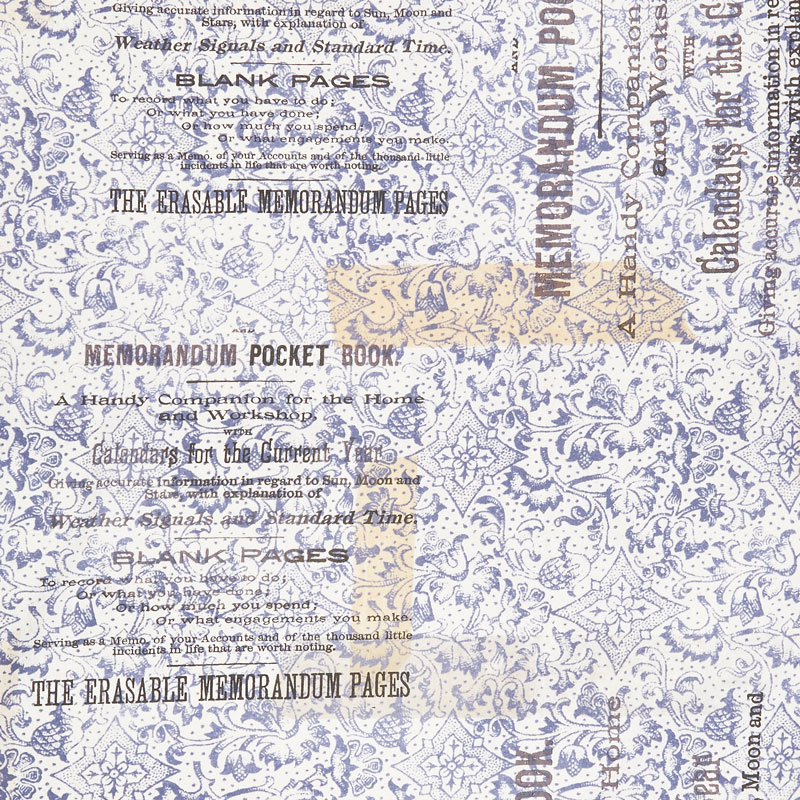 Giving accurate information in regard to Sun, Moon and
Stars, with explanation of
Weather Signals and Standard Time.
BLANK PAGES
To record what you have to do;
Or what you have done;
Or how much you spend;
Or what engagements you make.
Serving as a Memo. of your Accounts and of the thousand little
incidents in life that are worth noting.
THE ERASABLE MEMORANDUM PAGES
AND
MEMORANDUM POCKET BOOK.
A Handy Companion for the Home
and Workshop,
WITH
Calendars for the Current Year
Giving accurate information in regard to Sun, Moon and
Stars, with explanation of
Weather Signals and Standard Time.
BLANK PAGES
To record what you have to do;
Or what you have done;
Or how much you spend;
Or what engagements you make.
Serving as a Memo. of your Accounts and of the thousand little
incidents in life that are worth noting.
THE ERASABLE MEMORANDUM PAGES
AND
MEMORANDUM PO
A Handy Companion
and Works
WITH
Calendars for the C
Giving accurate information in re
Stars, with explan
OOK.
Home
ear
Moon and